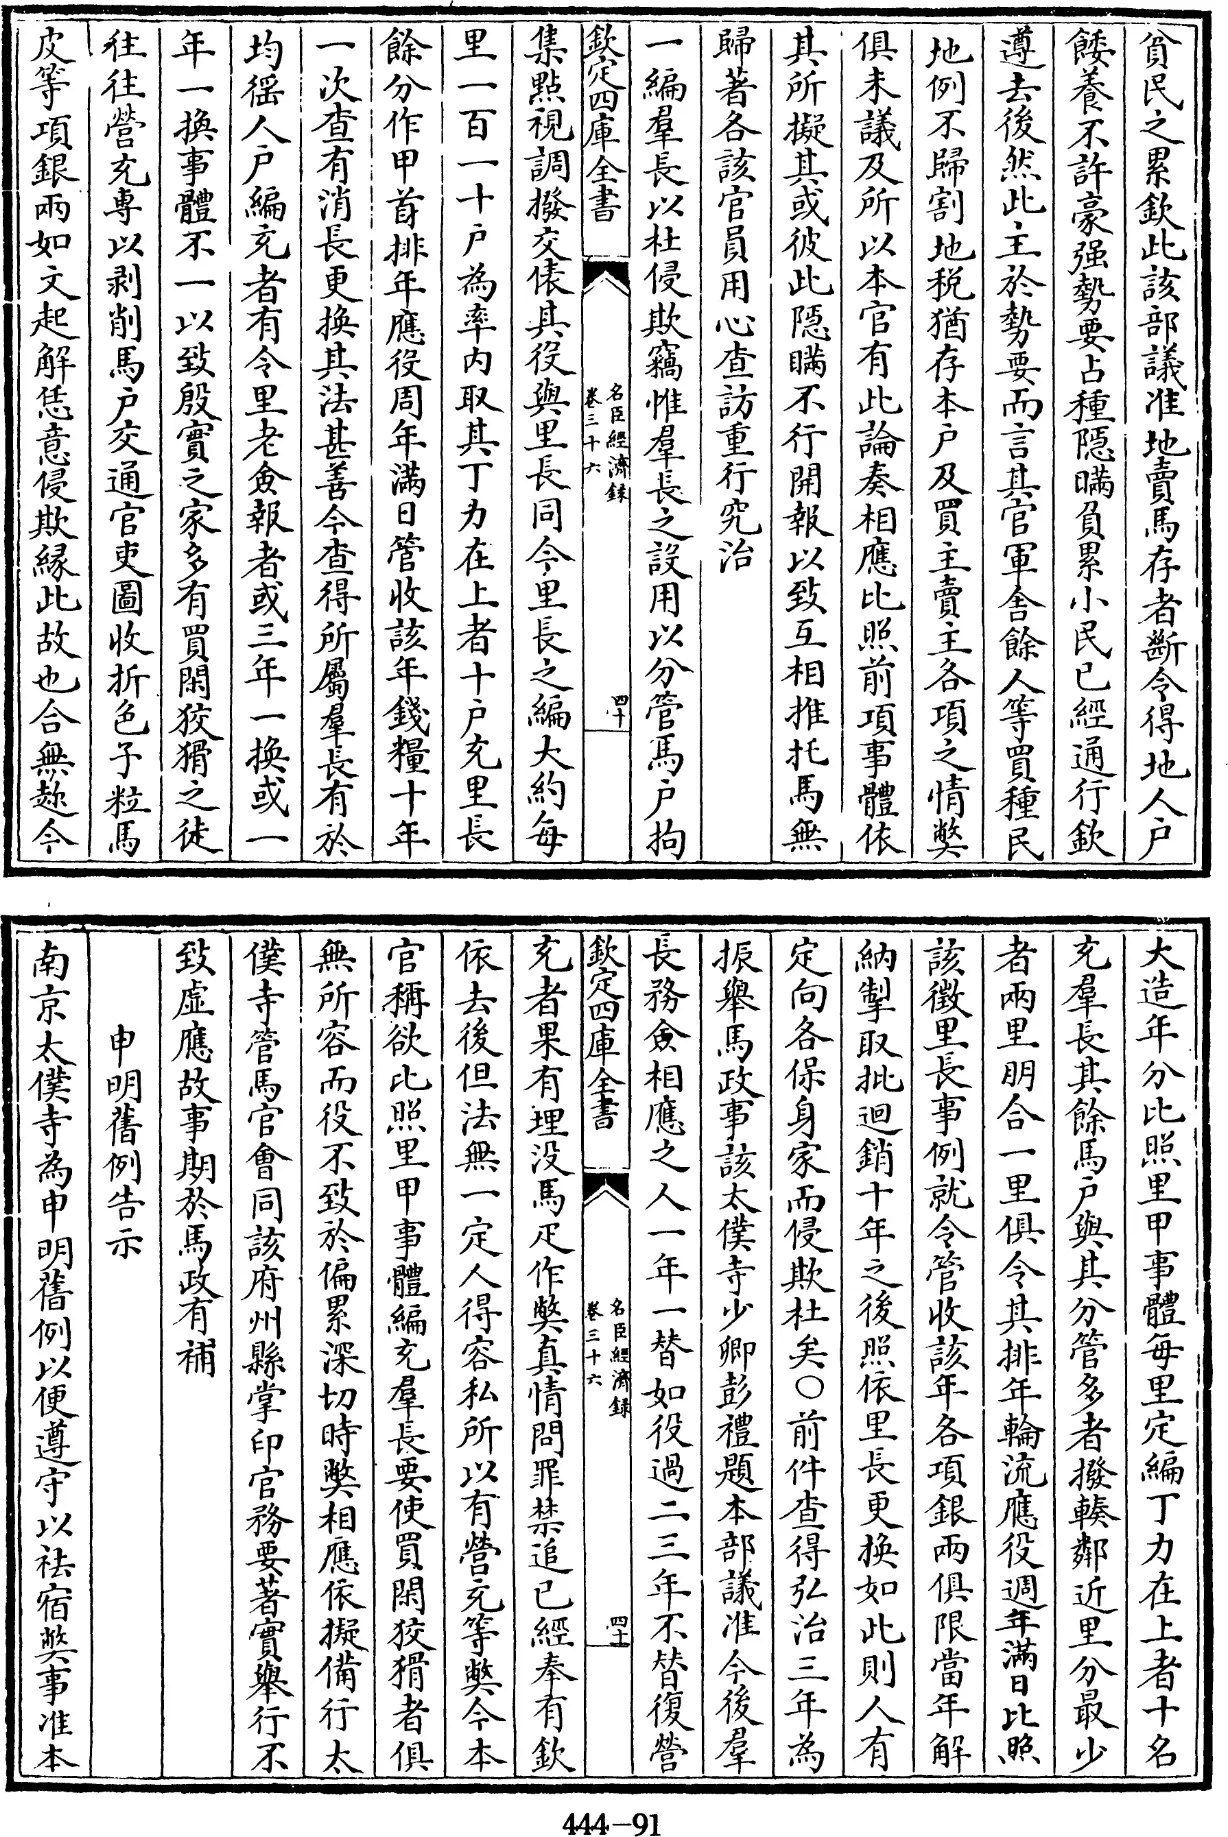 貧民之累欽此該部議准地賣馬存者斷令得地人戸
餧養不許豪强勢要占種隠瞞負累小民已經通行欽
遵去後然此主於勢要而言其官軍舎餘人等買種民
地例不歸割地稅猶存本戸及買主賣主各項之情弊
俱未議及所以本官有此論奏相應比照前項事體依
其所擬其或彼此隠瞞不行開報以致互相推托馬無
歸著各該官員用心查訪重行究治
一編羣長以杜侵欺竊惟羣長之設用以分管馬戸拘
欽定四庫全書
名臣經濟録
卷三十六
四十
集點視調撥交俵其役與里長同今里長之編大約每
里一百一十戸為率内取其丁力在上者十戸充里長
餘分作甲首排年應役周年滿日管收該年錢糧十年
一次查有消長更換其法甚善今查得所屬羣長有於
均徭人戸編充者有令里老僉報者或三年一換或一
年一換事體不一以致殷實之家多有買閑狡猾之徒
往往營充専以剥削馬戸交通官吏圖收折色子粒馬
皮等項銀兩如文起解恁意侵欺縁此故也合無趂今
大造年分比照里甲事體每里定編丁力在上者十名
充羣長其餘馬戸與其分管多者撥輳鄰近里分最少
者兩里朋合一里俱令其排年輪流應役週年滿日比照
該徵里長事例就令管收該年各項銀兩俱限當年解
納掣取批迴銷十年之後照依里長更換如此則人有
定向各保身家而侵欺杜矣○前件查得弘治三年為
振舉馬政事該太僕寺少卿彭禮題本部議准今後羣
長務僉相應之人一年一替如役過二三年不替復營
欽定四庫全書
名臣經濟録
卷三十六
四十一
充者果有埋没馬疋作弊真情問罪禁追已經奉有欽
依去後但法無一定人得容私所以有營充等弊今本
官稱欲比照里甲事體編充羣長要使買閑狡猾者俱
無所容而役不致於偏累深切時弊相應依擬備行太
僕寺管馬官會同該府州縣掌印官務要著實舉行不
致虛應故事期於馬政有補
申明舊例告示
南京太僕寺為申明舊例以便遵守以祛宿弊事准本
444-91